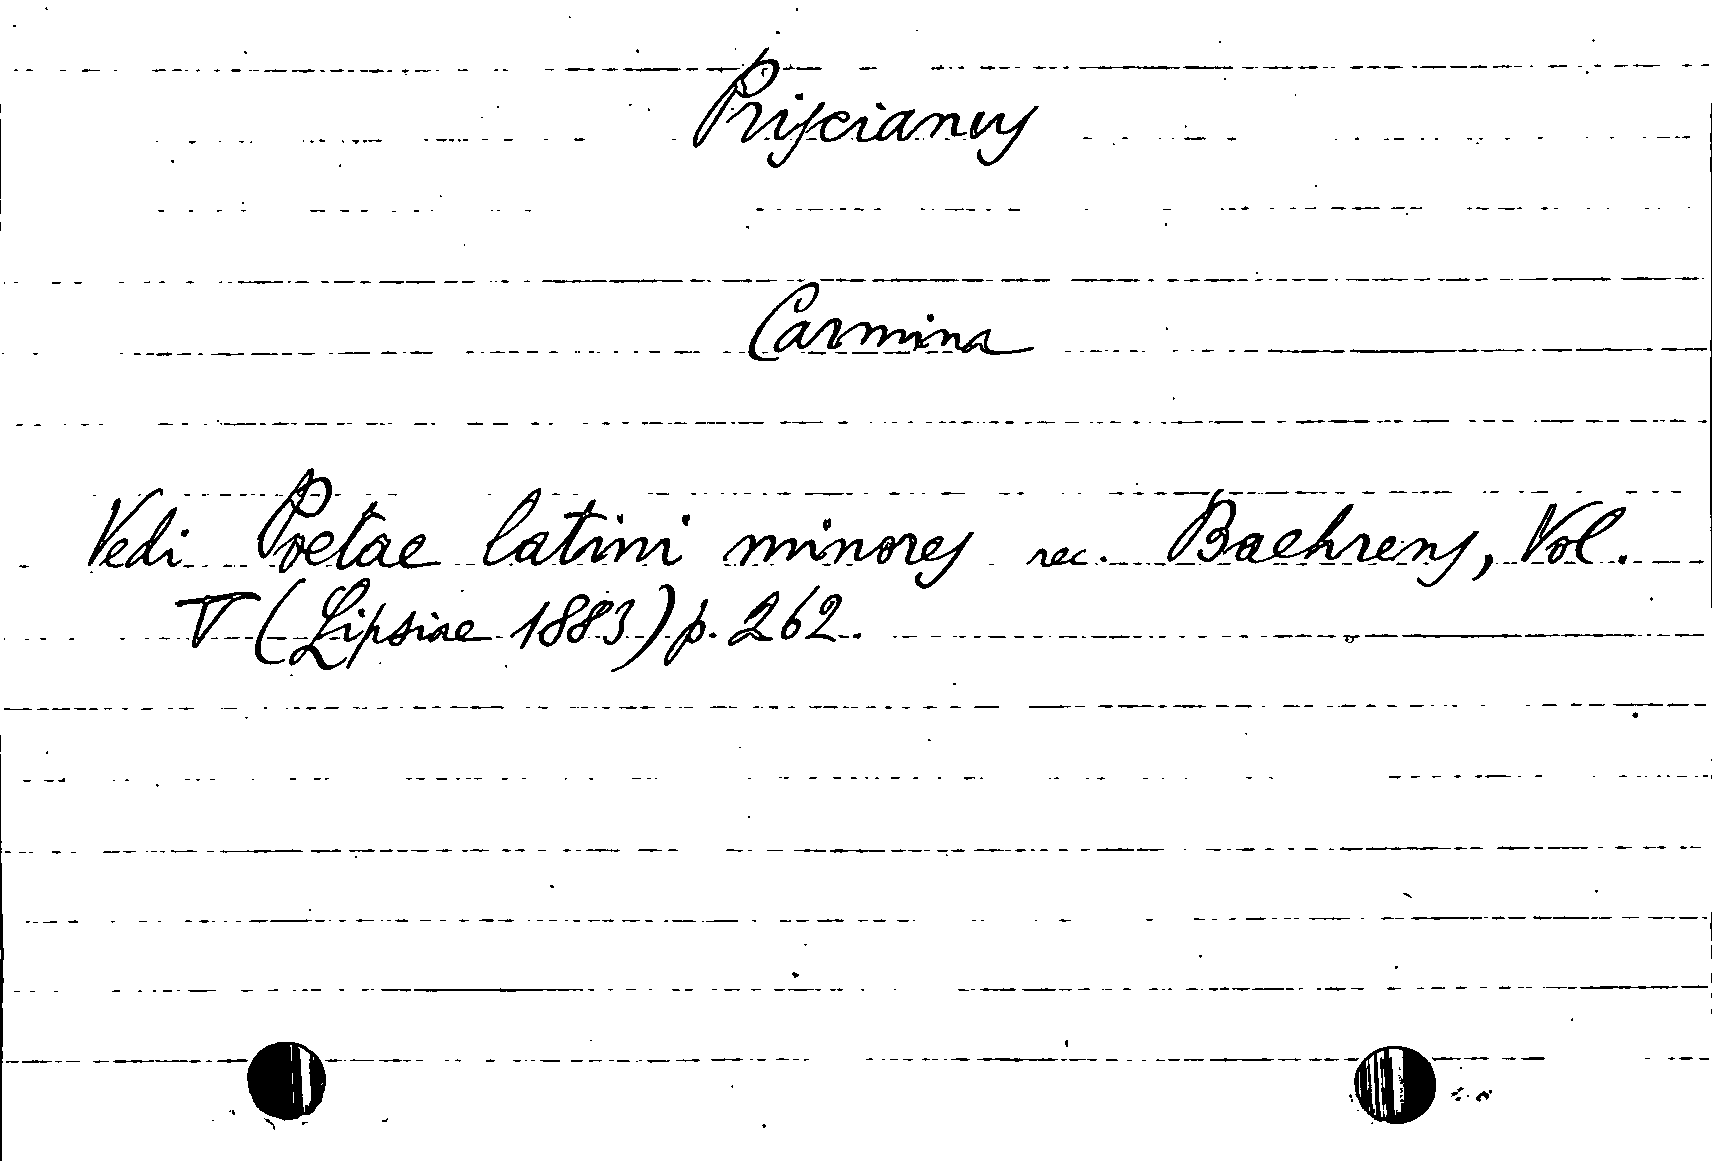 Priscianus
Carmina
Vedi Poetae latini minores rec. Baehrens, Vol.
V (Lipsiae 1883) p. 262.